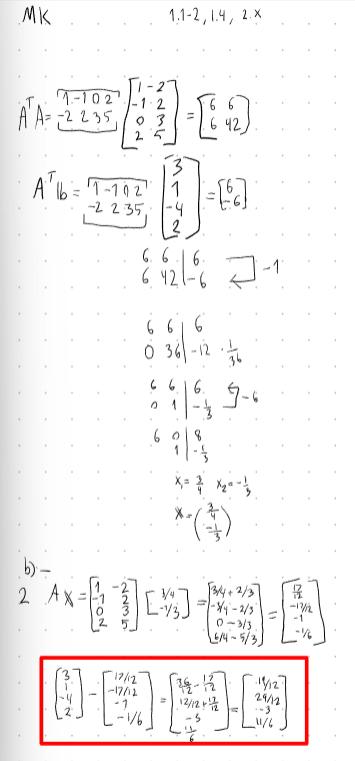 MK 1.1-2, 1.4, 2.x
A^T A = [1 -1 0 2; -2 2 3 5] [1 -2; -1 2; 0 3; 2 5] = [6 6; 6 42]
A^T b = [1 -1 0 2; -2 2 3 5] [3; 1; -4; 2] = [6; -6]
6 6 | 6
6 42 | -6 -1
6 6 | 6
0 36 | -12 · 1/36
6 6 | 6
0 1 | -1/3 -6
6 0 | 8
1 | -1/3
x₁ = 3/4 x₂ = -1/3
x = (3/4; -1/3)
b) -
2 Ax = [1 -2; -1 2; 0 3; 2 5] [3/4; -1/3] = [3/4 + 2/3; -3/4 - 2/3; 0 - 3/3; 6/4 - 5/3] = [17/12; -17/12; -1; -1/6]
[3; 1; -4; 2] - [17/12; -17/12; -1; -1/6] = [36/12 - 17/12; 12/12 + 17/12; -3; 11/6] = [19/12; 29/12; -3; 11/6]